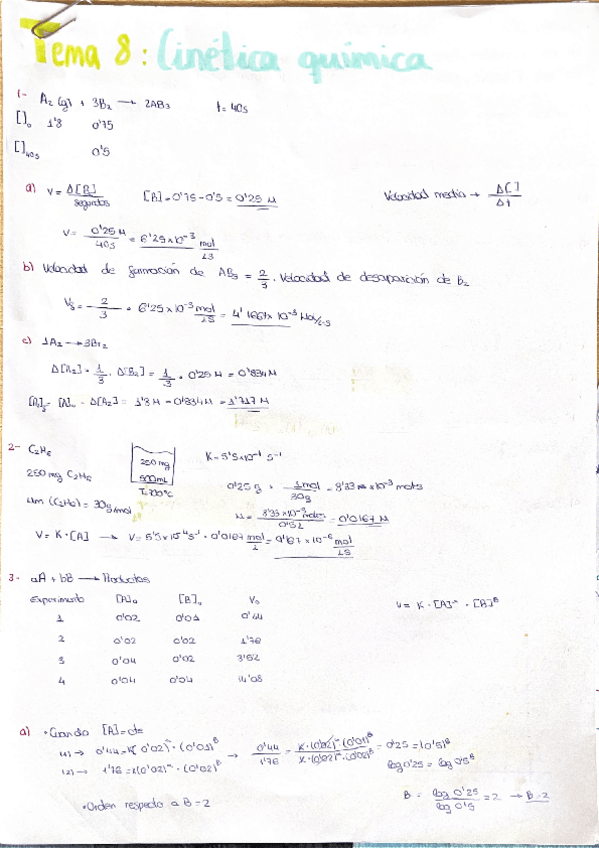 Tema 8: Cinética química
1- A₂(g) + 3B₂ → 2AB₃ t = 40s
[ ]₀ 1'8 0'75
[ ]₄₀ₛ 0'5
a) V = Δ[B] / segundos [A] = 0'75 - 0'5 = 0'25 M Velocidad media → Δ[ ] / Δt
V = 0'25 M / 40s = 6'25 x 10⁻³ mol / LS
b) Velocidad de formación de AB₃ = 2/3 . Velocidad de desaparición de B₂
= - 2/3 · 6'25 x 10⁻³ mol / LS = 4'1667 x 10⁻³
c) 1A₂ → 3B₂
Δ[A₂] = 1/3 · Δ[B₂] = 1/3 · 0'25 M = 0'834 M
Δ[A₂] = 1'8 M - 0'834 M = 1'717 M
2- C₂H₆ 250 mg K = 5'5x10⁻⁴ s⁻¹
250 mg C₂H₆ 500 mL 0'25 g · 1 mol / 30g = 8'33 x 10⁻³ moles
Mm (C₂H₆) = 30 g/mol T = 700ºC M = 8'33 x 10⁻³ moles / 0'5 L = 0'0167 M
V = K · [A] → V = 5'5 x 10⁻⁴ s⁻¹ · 0'0167 mol / L = 9'167 x 10⁻⁶ mol / LS
3- aA + bB → Productos
Experimento [A]₀ [B]₀ V₀ V = K · [A]^α · [B]^β
1 0'02 0'01 0'44
2 0'02 0'02 1'76
3 0'04 0'02 3'52
4 0'04 0'04 14'08
a) • Cuando [A] = cte
(1) → 0'44 = K(0'02)^α · (0'01)^β → 0'44 / 1'76 = K · (0'02)^α · (0'01)^β / K · (0'02)^α · (0'02)^β = 0'25 = (0'5)^β
(2) → 1'76 = K(0'02)^α · (0'02)^β log 0'25 = log 0'5^β
• Orden respecto a B = 2 B = log 0'25 / log 0'5 = 2 → B = 2